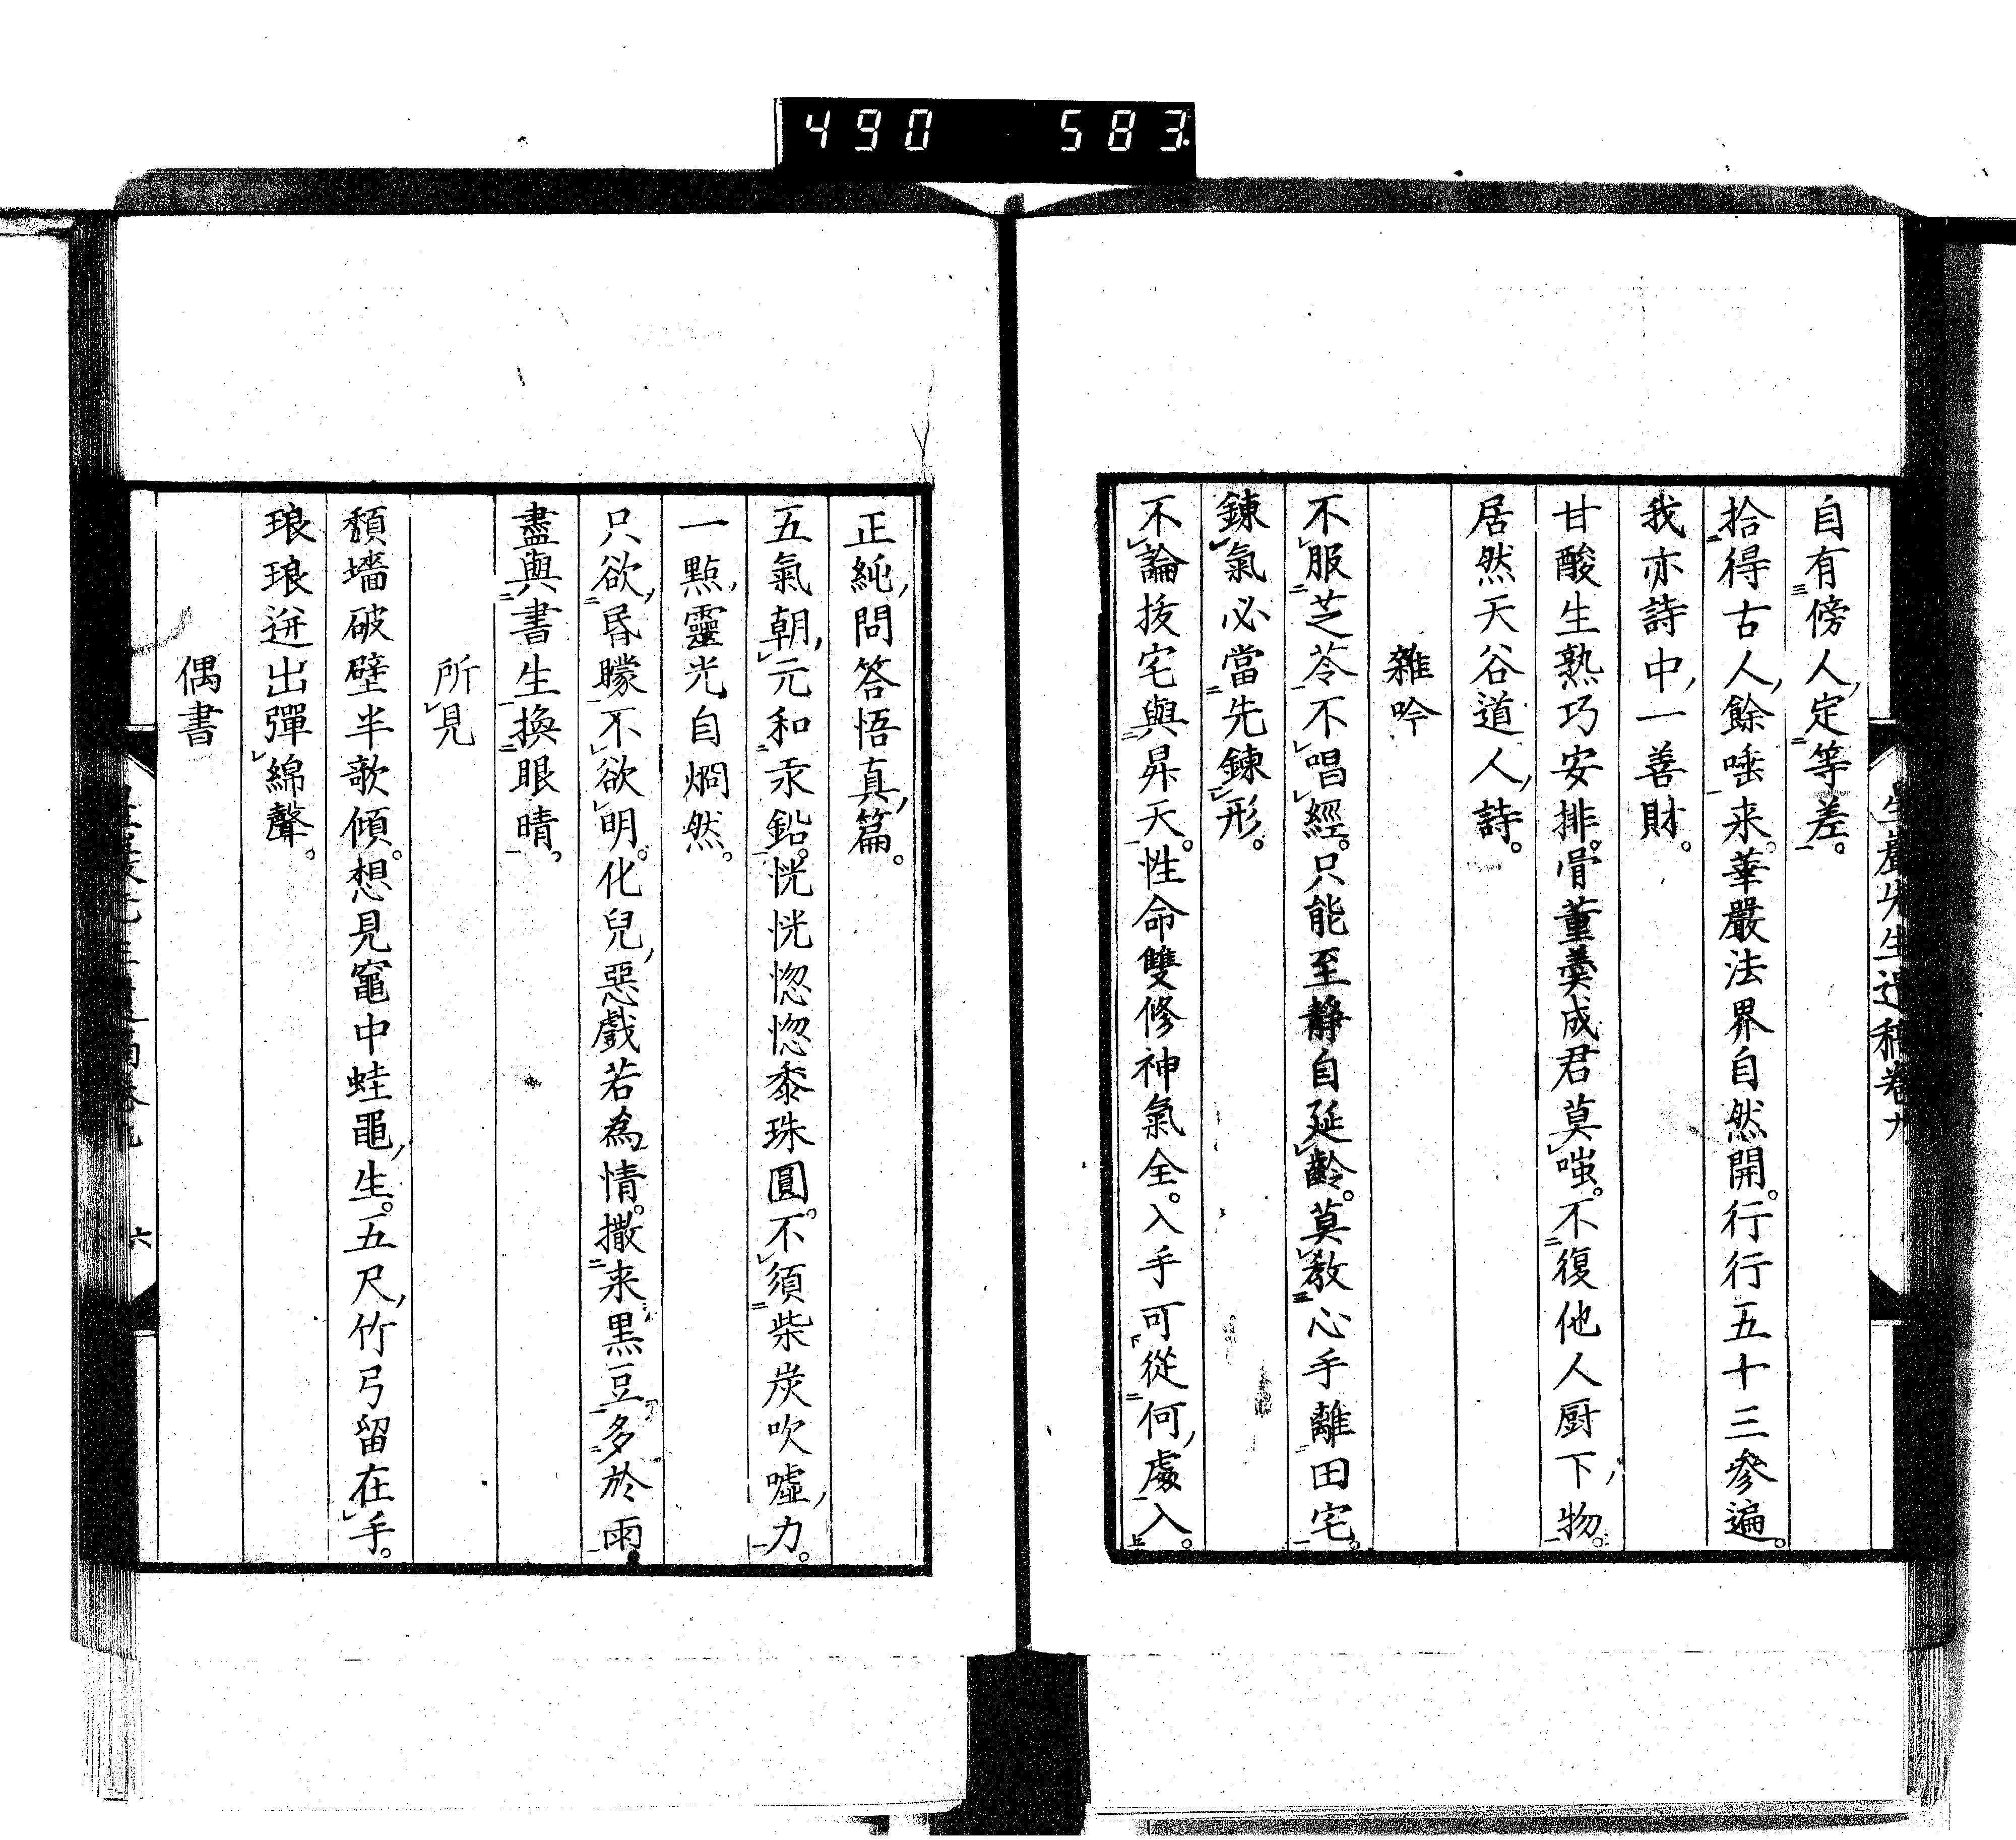 490 583
自有傍人定等差。
拾得古人餘唾来。華嚴法界自然開。行行五十三參遍。
我亦詩中一善財。
甘酸生熟巧安排。骨董羹成君莫嗤。不復他人厨下物。
居然天谷道人詩。
雜吟
不服芝苓不唱經。只能至靜自延齡。莫教心手離田宅。
鍊氣必當先鍊形。
不論抜宅與昇天。性命雙修神氣全。入手可從何處入。
正純問答悟真篇。
五氣朝元和汞鉛。恍恍惚惚黍珠圓。不須柴炭吹噓力。
一點靈光自烱然。
只欲昏矇不欲明。化兒惡戲若為情。撒来黒豆多於雨。
盡與書生換眼晴。
所見
頽墻破壁半欹傾。想見竈中蛙黽生。五尺竹弓留在手。
琅琅迸出彈綿聲。
偶書
六